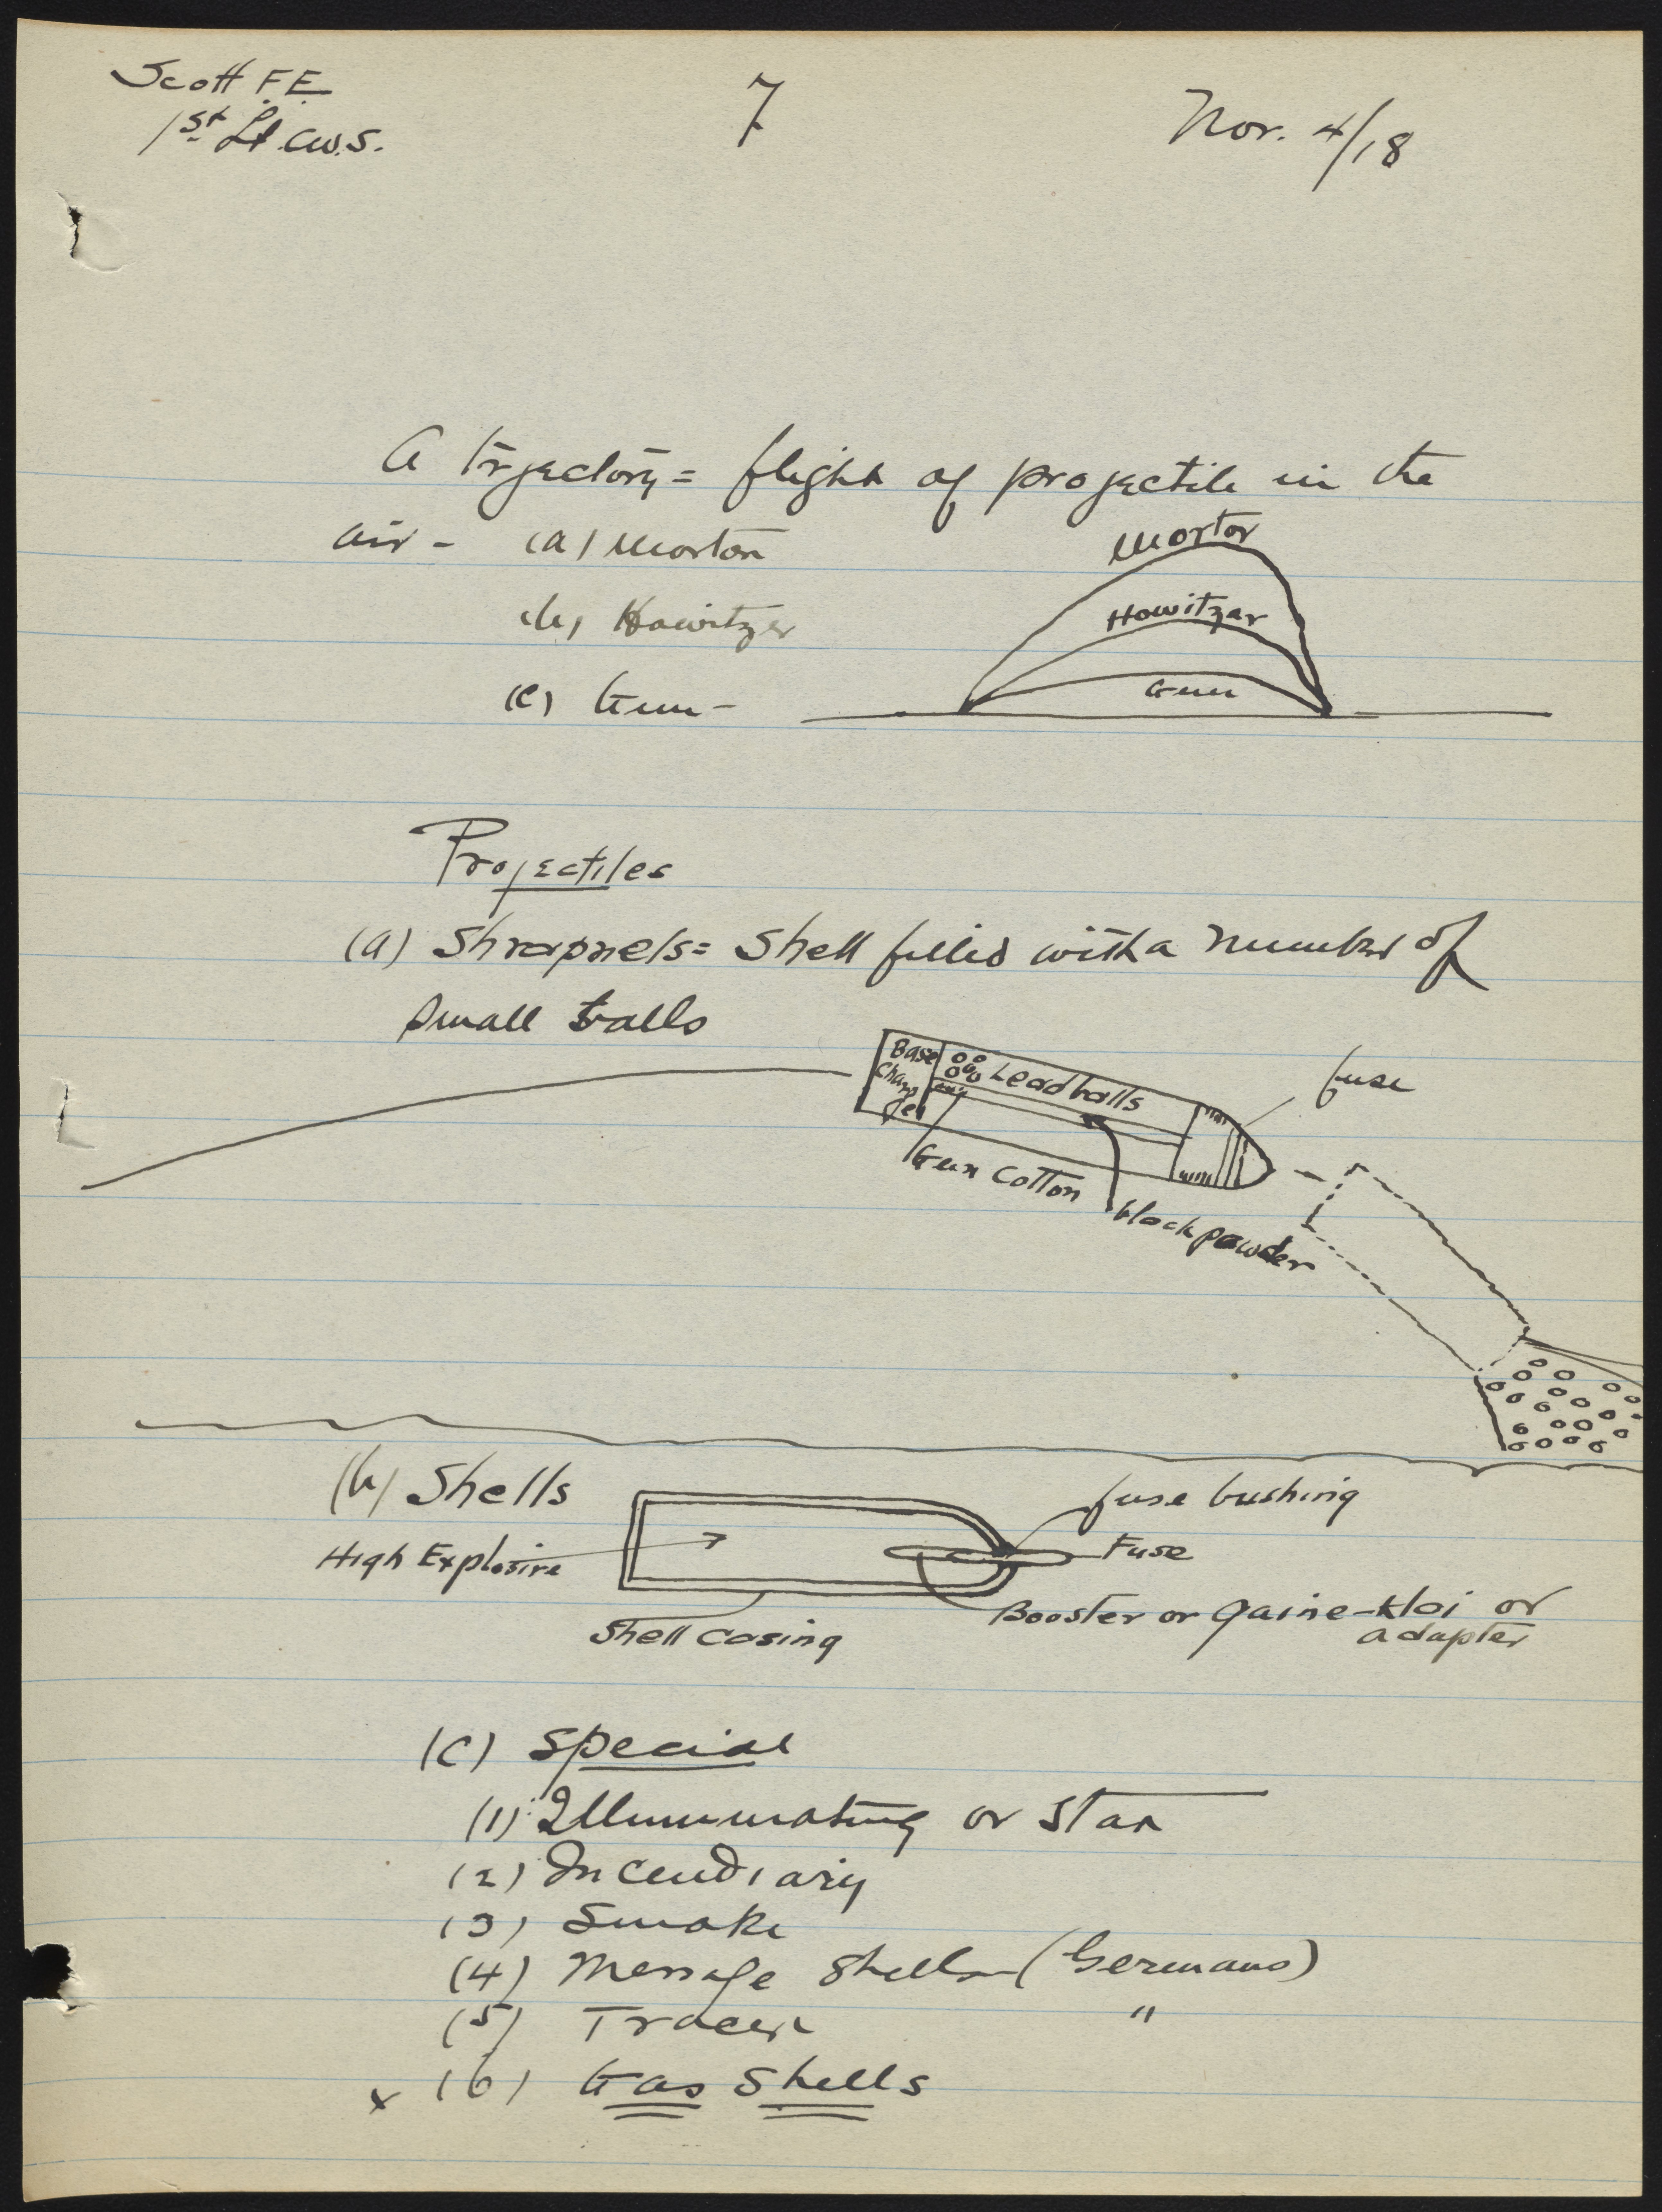 Scott F.E.
1st Lt. C.W.S.
7
Nov. 4/18
A trajectory = flight of projectile in the
air - (a) Mortar
Mortor
(b) Howitzer
Howitzer
(c) Gun -
Gun
Projectiles
(a) Shrapnels = Shell filled with a number of
small balls
Base
Charge
Lead balls
fuse
Gun Cotton
black powder
(b) Shells
fuse bushing
High Explosive
Fuse
Booster or gaine - or
adapter
Shell casing
(c) Special
(1) Illuminating or Star
(2) Incendiary
(3) Smoke
(4) Message Shells - (Germans)
(5) Tracer "
x (6) Gas Shells